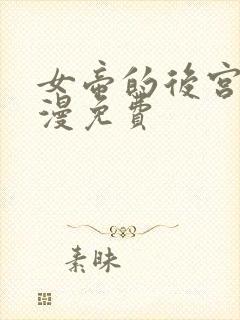 女帝的後宮
漫免費
素昧